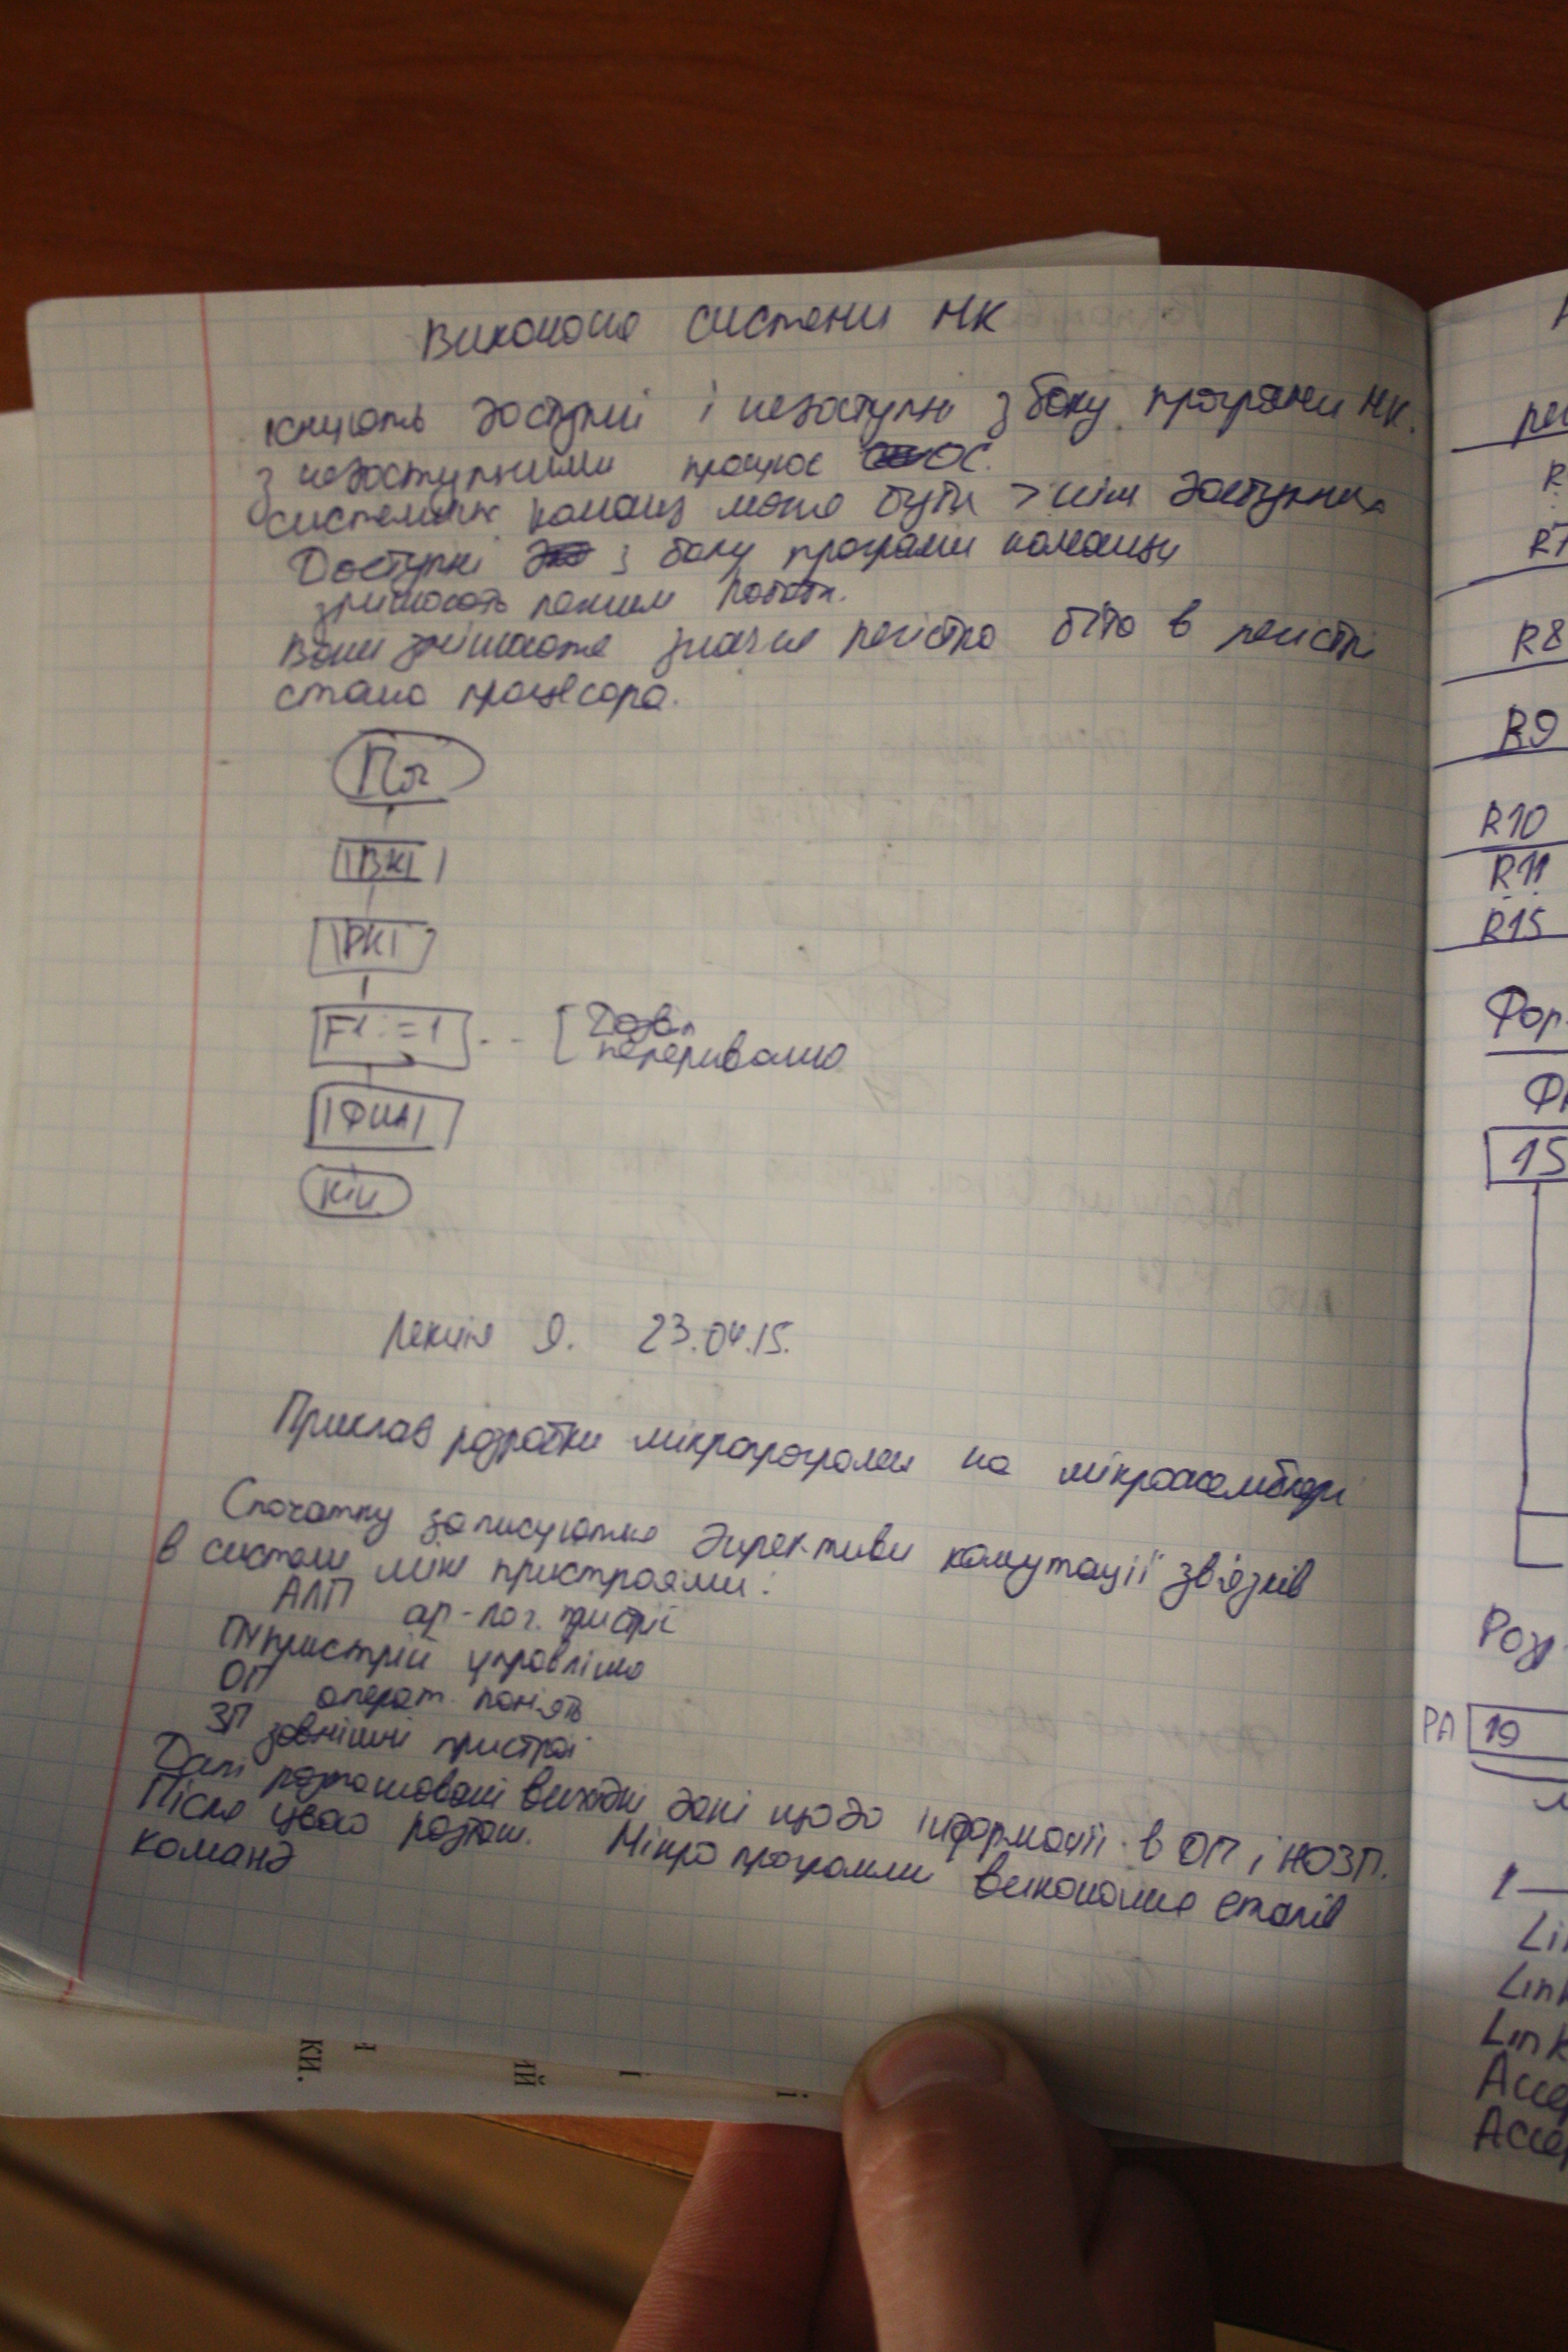 Виконання системи МК
Існують доступні і недоступні з боку програми МК.
з недоступними працює ОС.
системних команд може бути
Доступні з боку програми команди
змінюють режим роботи.
Вони змінюють регістра біта в регістрі
стана процесора.
Поч
|ВК|
|РК|
F1:=1 [ Дозв. перериванно
|ФИА|
Кін
Лекція 9. 23.04.15.
Приклад розробки мікропрограми на мікроасемблері
Спочатку записуються директиви комутації зв'язків
в системі між пристроями:
АЛП ар-лог. пристрії
ПУ пристрій управління
ОП операт. память
ЗП зовнішні пристрої
Далі розташовані вихідні дані щодо інформації в ОП і НОЗП.
Після цього розташ. Мікропрограмми виконання етапів
команд
R8
R9
R10
R11
R15
Фор
15
Роз
РА 19
Link
Link